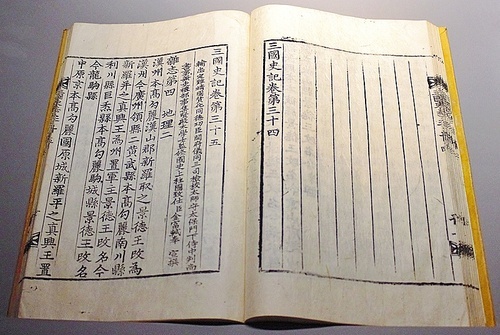 三國史記卷第三十四
三國史記卷第三十五
宣撰
雜志第四 地理二
漢州本高句麗漢山郡新羅取之景德王改爲
漢州今廣州領縣二黃武縣本高句麗南川縣
新羅幷之眞興王爲州置軍主景德王改名今
利川縣巨黍縣本高句麗駒城縣景德王改名
今龍駒縣
中原京本高句麗國原城新羅平之眞興王置